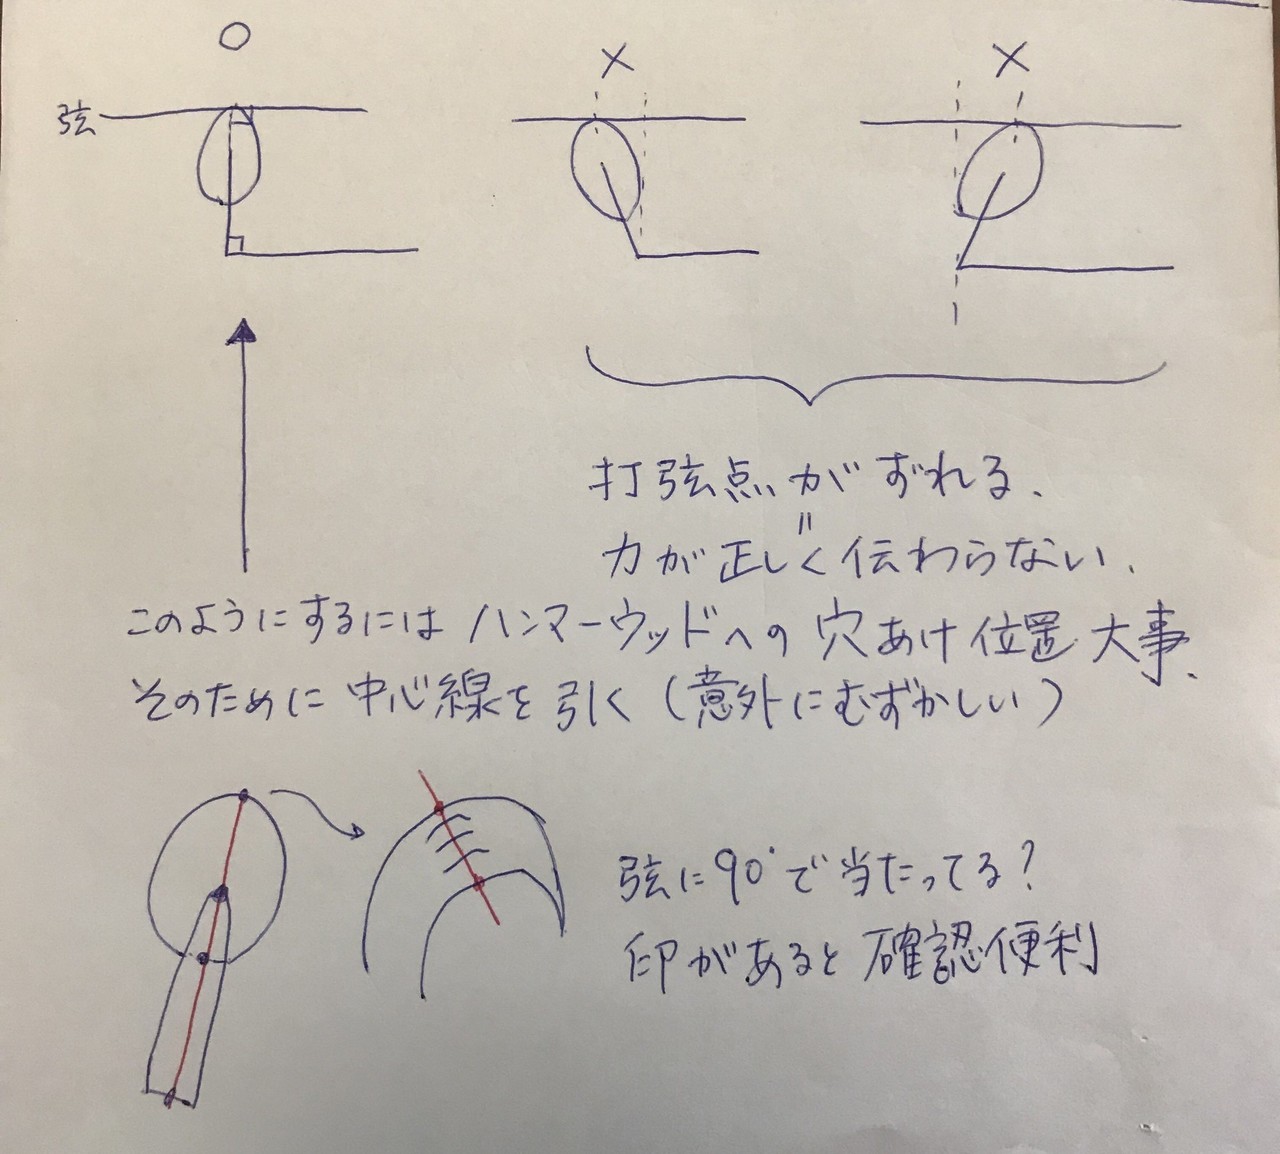 ○
×
×
弦
打弦点がずれる.
〃
力が正しく伝わらない.
このようにするにはハンマーウッドへの穴あけ位置大事.
そのために中心線を引く(意外にむずかしい)
弦に90°で当たってる?
印があると確認便利